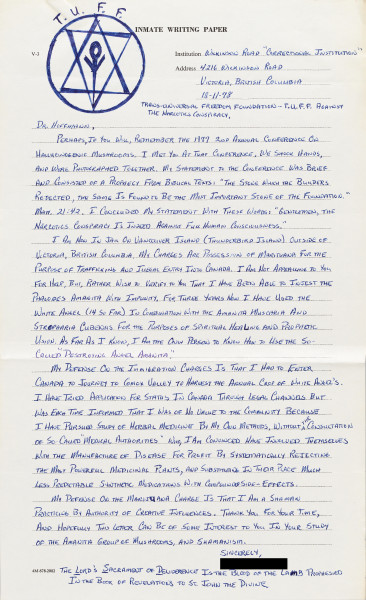 T. U. F. F.
INMATE WRITING PAPER
V-3
Institution Wilkinson Road "Correctional Institution"
Address 4216 Wilkinson Road
Victoria, British Columbia
18-11-78
Trans-Universal Freedom Foundation - T.U.F.F. Against
The Narcotics Conspiracy,
Dr. Hoffmann,
Perhaps, if you will, remember the 1977 2nd Annual Conference on
Hallucinogenic Mushrooms. I met you at that conference. We shook hands,
and were photographed together. My statement to the conference was brief
and consisted of a prophecy from Biblical texts: "The stone which the builders
rejected, the same is found to be the most important stone of the foundation."
Mat. 21:42. I concluded my statement with these words: "Gentlemen, the
narcotics conspiracy is indeed against full human consciousness."
I am now in jail on Vancouver Island (Thunderbird Island) outside of
Victoria, British Columbia. My charges are possession of marijuana for the
purpose of trafficking and illegal entry into Canada. I am not appealing to you
for help, but, rather wish to verify to you that I have been able to ingest the
Phalloides Amanita with impunity. For three years now I have used the
White Angel (14 so far) in combination with the Amanita Muscaria and
Stropharia Cubensis for the purposes of spiritual healing and prophetic
vision. As far as I know, I am the only person to know how to use the so-
called "Destroying Angel Amanita."
My defense on the immigration charges is that I had to enter
Canada to journey to Comox Valley to harvest the annual crop of White Angel's.
I have tried application for status in Canada through legal channels but
was each time informed that I was of no value to the community because
I have pursued study of herbal medicine by my own methods, without the consultation
of so called medical authorities' who, I am convinced have involved themselves
with the manufacture of disease for profit by systematically rejecting
the most powerful medicinal plants, and substituting in their place much
less predictable synthetic medications with compounded side-effects.
My defense on the marijuana charge is that I am a shaman
practicing by authority of creative influences. Thank you for your time,
and hopefully this letter can be of some interest to you in your study
of the Amanita group of mushrooms, and shamanism.
Sincerely,
The Lord's Sacrament of Deliverance is the Blood of the Lamb prophesied
in the Book of Revelations to St. John the Divine